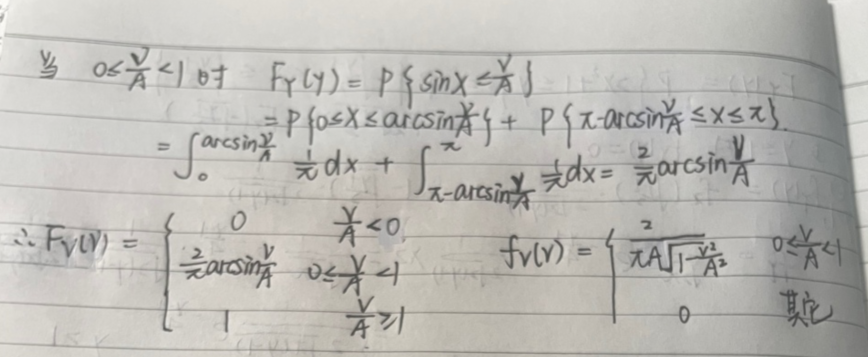 当 0≤V/A<1时 F_Y(y) = P{sinX≤V/A}
= P{0≤X≤arcsin V/A} + P{π-arcsin V/A≤X≤π}.
= ∫_0^{arcsin V/A} 1/π dx + ∫_{π-arcsin V/A}^π 1/π dx = 2/π arcsin V/A
∴ F_V(V) = { 0 V/A<0 ; 2/π arcsin V/A 0≤V/A<1 ; 1 V/A≥1 f_V(V) = { 2/(πA√(1-V²/A²)) 0≤V/A<1 ; 0 其它